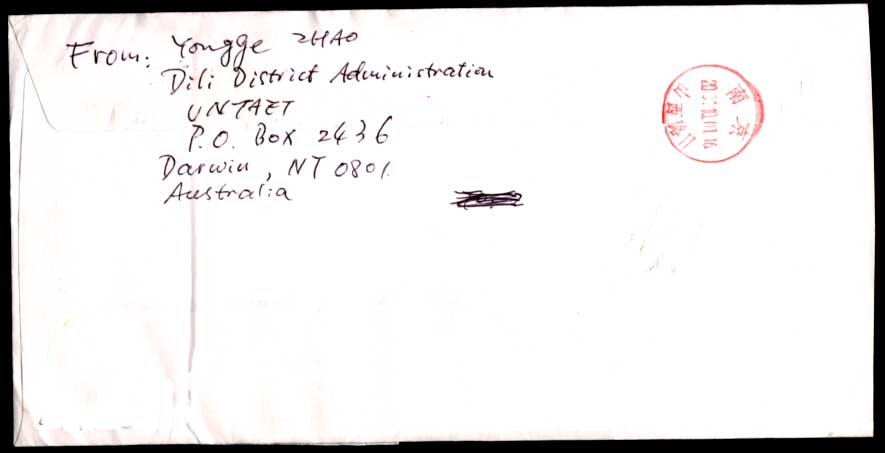 From: Yongge ZHAO
Dili District Administration
UNTAET
P.O. Box 2436
Darwin, NT 0801.
Australia
南京